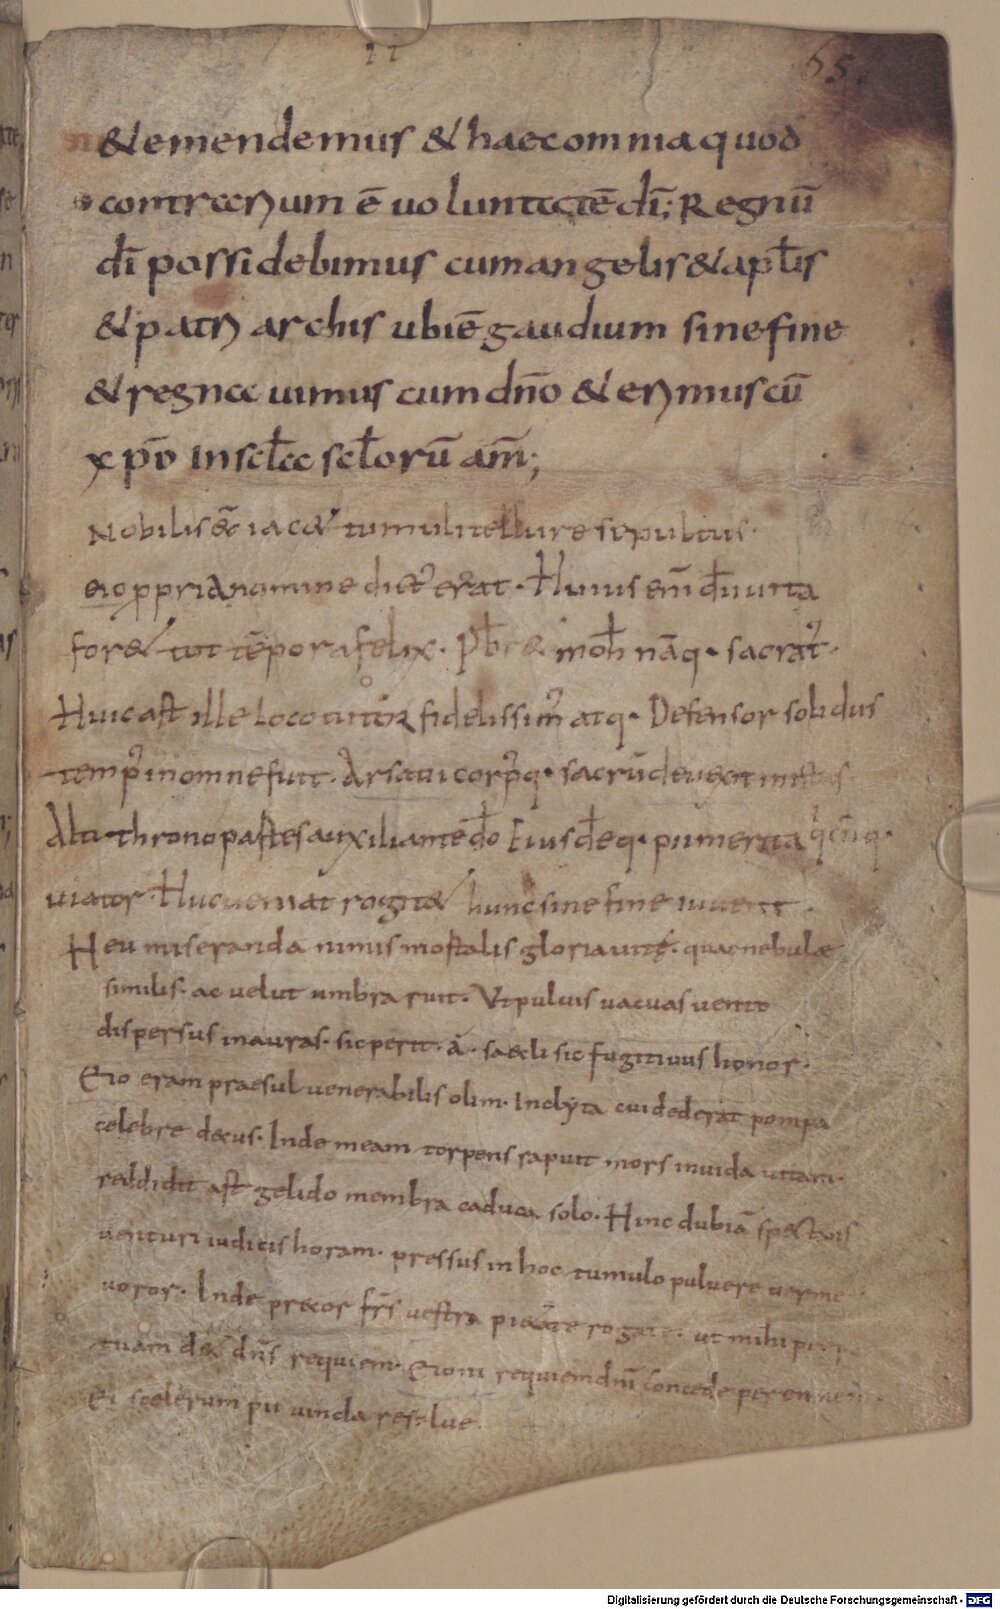 65.
& emendemus & haec omnia quod
contrarium ē uoluntatē dī; Regnū
dī possidebimus cum angelis & apłis
& patriarchis ubi ē gaudium sine fine
& regna uimus cum dn̄o & erimus cū
xp̄o In scła scłorū am̄;
Nobilis & iac& tumuli tellure sepultus.
eio ppria nomine dict' erat. Huius eni đ in uita
for& tot tēpora felix. Pbr & moh nāq. sacrat'.
Huic ast ille loco tutor fidelissim' atq. Defensor solidus
temp' in omne fuit. Arsatii corp'q. sacrū deuexit
Alti throno pastes auxiliante đo Eiusđeq. pii merita q'cūq.
uiator. Huc ueniat rogit& hunc sine fine iuuent.
Heu miseranda nimis mortalis gloria uitę. quae nebulae
similis. ac velut umbra ruit. Ut puluis vacuas vento
dispersus in auras. sic perit. á. saecli sic fugitiuus honor.
Eio eram praesul venerabilis olim. Inclyta cui dederat pompa
celebre decus. Inde meam torpens rapuit mors inuida uitam.
reddidit ast gelido membra caduca solo. Hinc dubiā spectans
uenturi iudicis horam. pressus in hoc tumulo puluere verme
uoror. Inde precor frs̄ uestra pietate rogate. ut mihi perpe
tuam d& dn̄s requiem. Eioni requiem dn̄i concede perennem.
Ei scelerum pie uincla resolue.
Digitalisierung gefördert durch die Deutsche Forschungsgemeinschaft - DFG